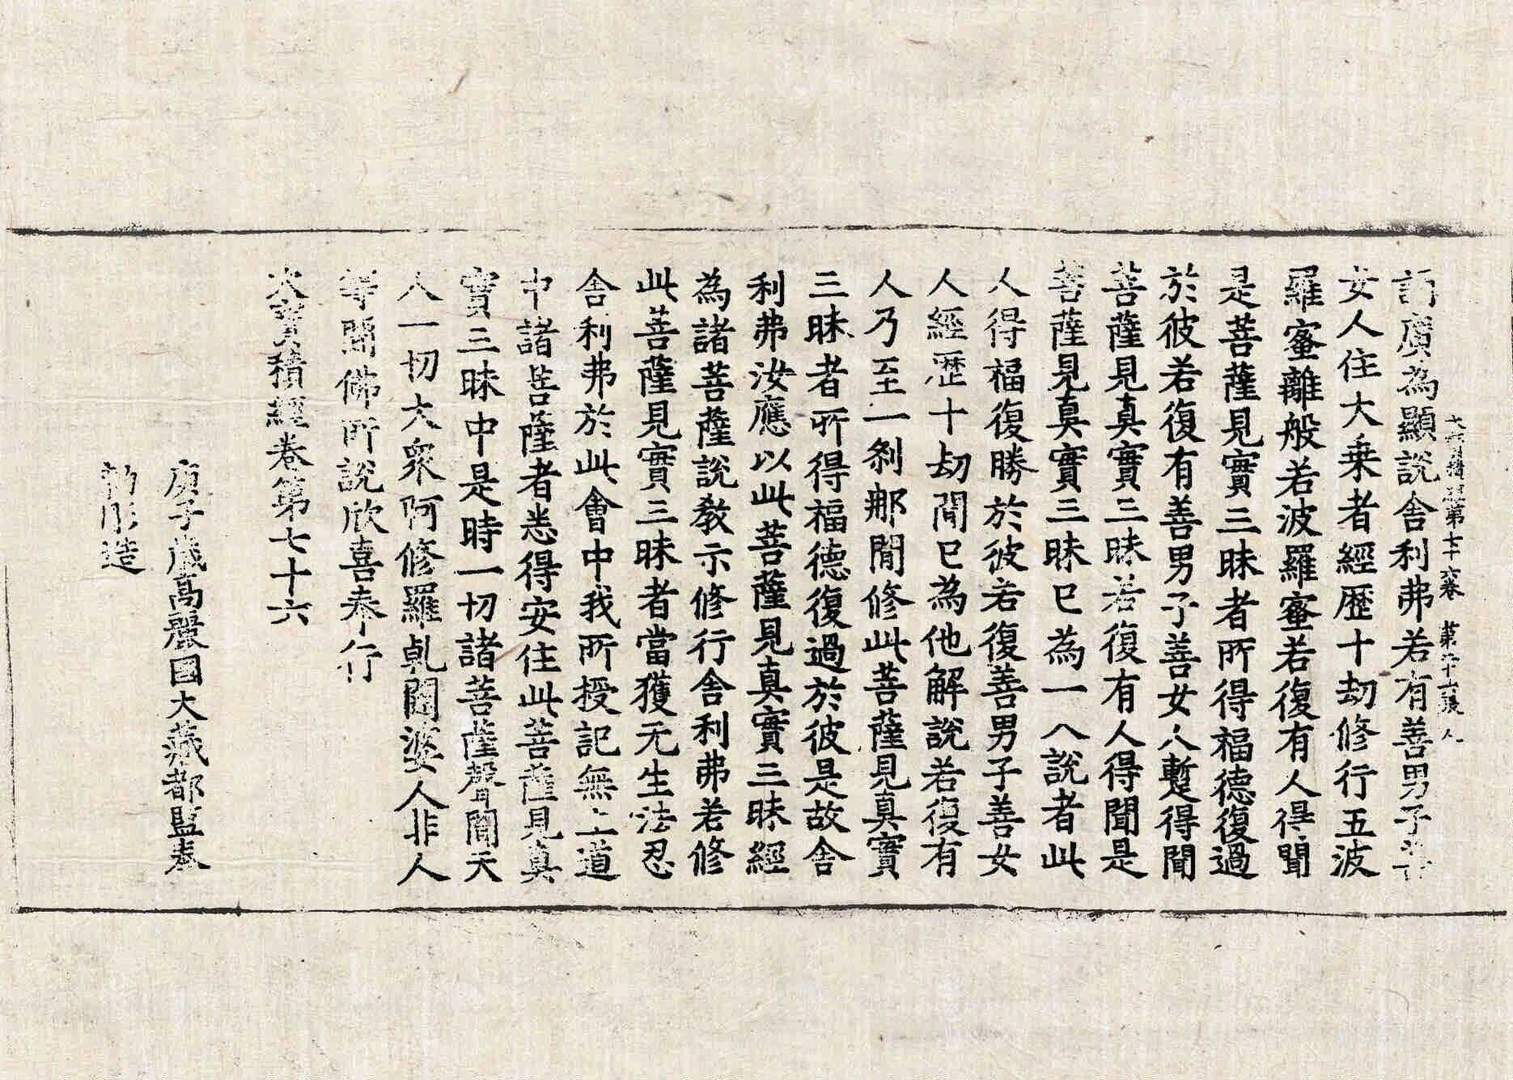 大寶積經第七十六卷　第二十一張　人
訶廣為顯說舍利弗若有善男子善
女人住大乗者經歷十劫修行五波
羅蜜離般若波羅蜜若復有人得聞
是菩薩見實三昧者所得福德復過
於彼若復有善男子善女人蹔得聞
菩薩見真實三昧若復有人得聞是
菩薩見真實三昧已為一人說者此
人得福復勝於彼若復善男子善女
人經歷十劫聞已為他解說若復有
人乃至一刹那閒修此菩薩見真實
三昧者所得福德復過於彼是故舍
利弗汝應以此菩薩見真實三昧經
為諸菩薩說教示修行舍利弗若修
此菩薩見實三昧者當獲无生法忍
舍利弗於此會中我所授記無上道
中諸菩薩者悉得安住此菩薩見真
實三昧中是時一切諸菩薩聲聞天
人一切大衆阿修羅乹闥婆人非人
等聞佛所說欣喜奉行
大寶積經卷第七十六
庚子歲高麗國大藏都監奉
勑彫造